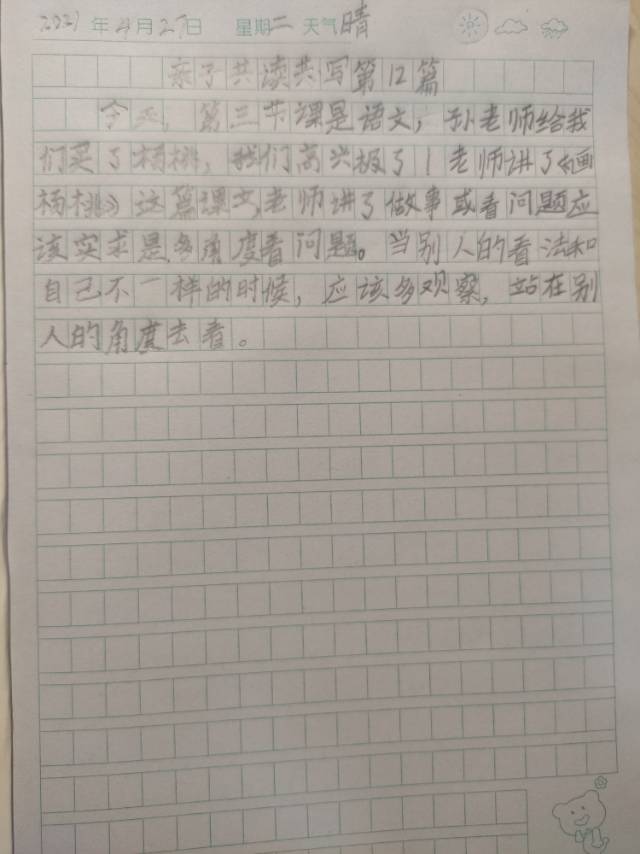 2021年4月27日 星期二 天气晴
亲子共读共写第12篇
今天,第三节课是语文,孙老师给我
们买了杨桃,我们高兴极了!老师讲了《画
杨桃》这篇课文,老师讲了做事或看问题应
该实求是多角度看问题。当别人的看法和
自己不一样的时候,应该多观察,站在别
人的角度去看。